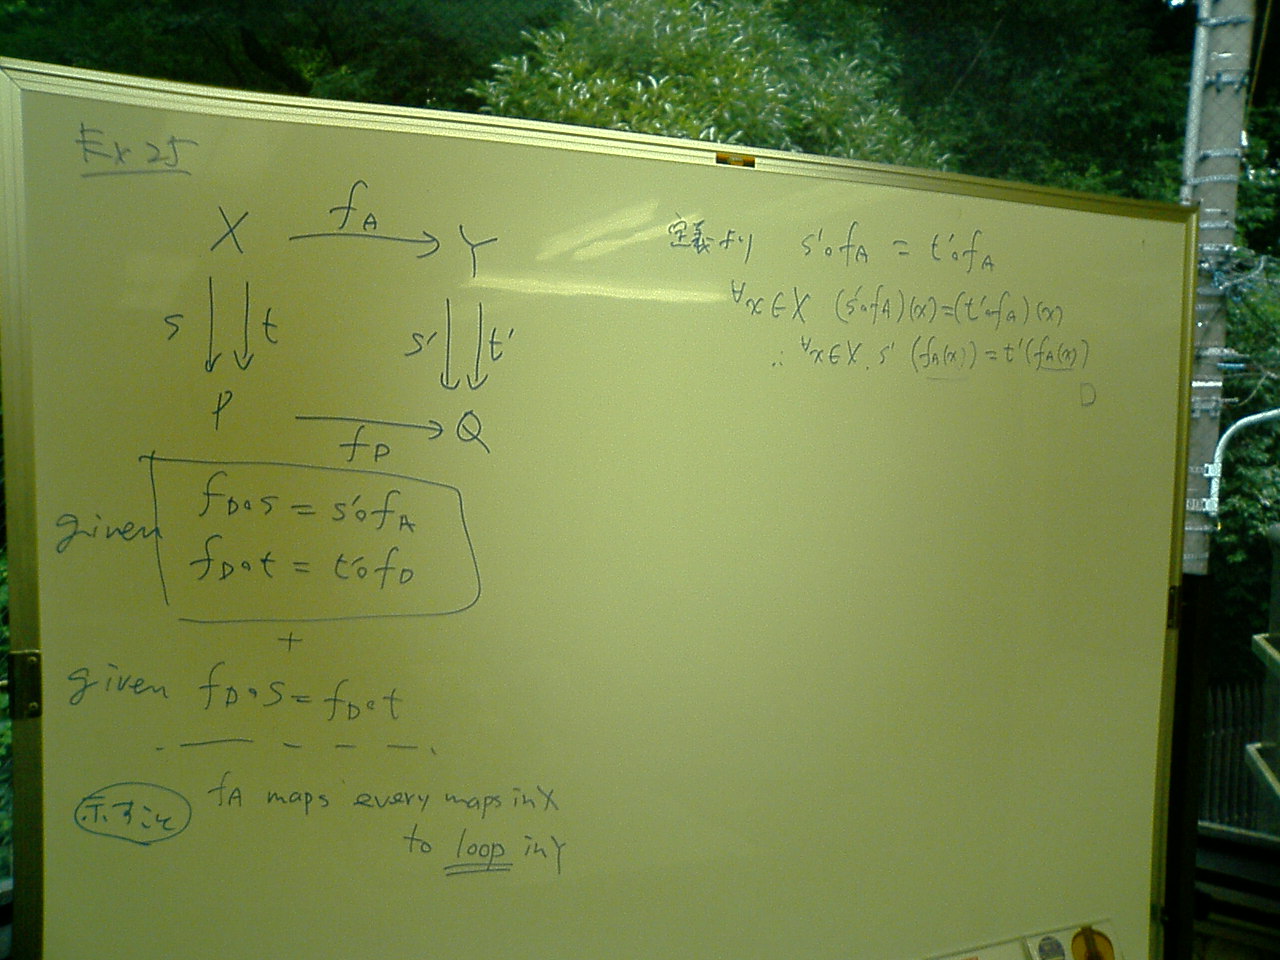 Ex 25
X f_A Y
s t s' t'
P f_D Q
given f_D∘s = s'∘f_A
f_D∘t = t'∘f_D
+
given f_D∘s = f_D∘t
示すこと f_A maps every maps in X
to loop in Y
定義より s'∘f_A = t'∘f_A
∀x∈X (s'∘f_A)(x)=(t'∘f_A)(x)
∴ ∀x∈X. s'(f_A(x)) = t'(f_A(x))
□